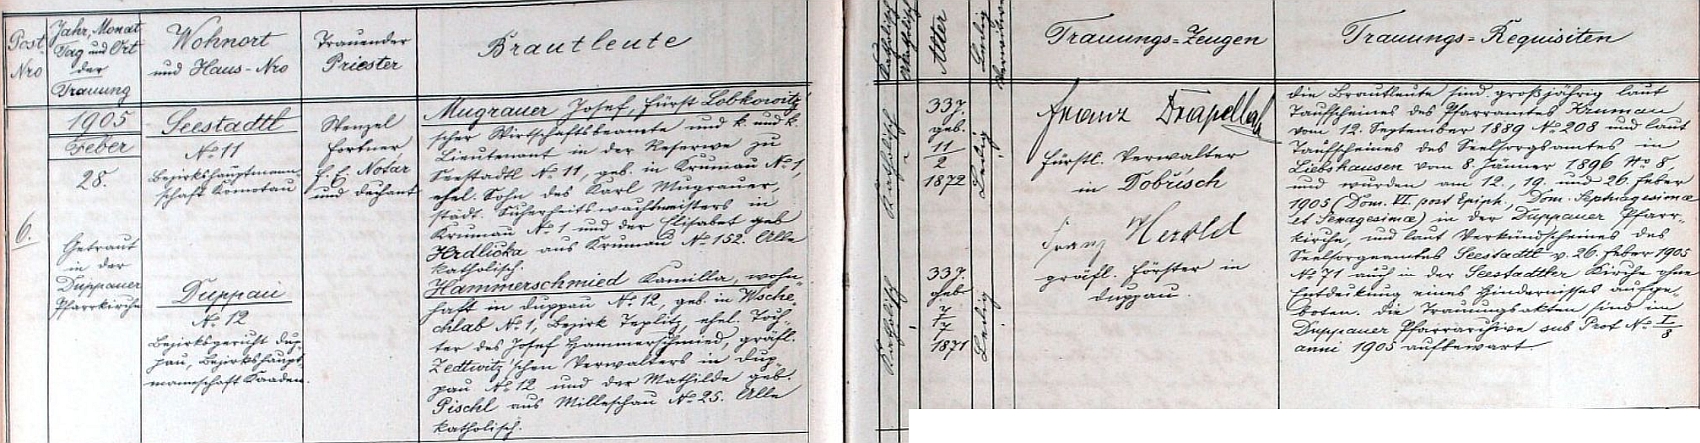 Post
Nro
Jahr, Monat
Tag und Ort
der
Trauung
Wohnort
und Haus-Nro
Trauender
Priester
Brautleute
Katholisch
Akatholisch
Alter
Ledig
Verwitwet
Trauungs-Zeugen
Trauungs-Requisiten
6.
1905
Feber
28.
Getraut
in der
Duppauer
Pfarrkirche
Seestadtl
No 11
Bezirkshauptmann-
schaft Komotau
Duppau
No 12
Bezirksgericht Dup-
pau, Bezirkshaupt-
mannschaft Kaaden.
Wenzel
Fortner
f. e. Notar
und Dechant
Mugrauer Josef, Fürst Lobkowitz'
scher Wirtschaftsbeamte und k. und k.
Lieutenant in der Reserve zu
Seestadtl No 11, geb. in Krumau No 1,
ehel. Sohn des Karl Mugrauer,
städt. Sicherheitswachtmeisters in
Krumau No 1 und der Elisabet geb.
Hrdlička aus Krumau No 152. Alle
katholisch.
Hammerschmied Kamilla, wohn-
haft in Duppau No 12, geb. in Wsche-
chlab No 1, Bezirk Teplitz, ehel. Toch-
ter des Josef Hammerschmied, gräfl.
Zedtwitz'schen Verwalters in Dup-
pau No 12 und der Mathilde geb.
Pischl aus Milleschau No 25. Alle
katholisch.
Katholisch
33J.
geb.
11/2
1872
Ledig
Katholisch
33J.
geb
7/7
1871
Ledig
Franz
fürstl. Verwalter
in Dobřisch
Franz Herold
gräfl. Förster in
Duppau.
Die Brautleute sind großjährig laut
Taufscheines des Pfarramtes Krumau
vom 12. September 1889 No 208 und laut
Taufscheines des Seelsorgamtes in
Liebshausen vom 8. Jänner 1896 No 8,
und wurden am 12., 19. und 26. Feber
1905 (Dom. VI. post Epiph., Dom. Septuagesimæ
et Sexagesimæ) in der Duppauer Pfarr-
kirche, und laut Verkündscheines des
Seelsorgeamtes Seestadtl v. 26. Feber 1905
No 71 auch in der Seestadtler Kirche ohne
Entdeckung eines Hindernisses aufge-
boten. Die Trauungsakten sind im
Duppauer Pfarrarchive sub Prot No I/8
anni 1905 aufbewart.